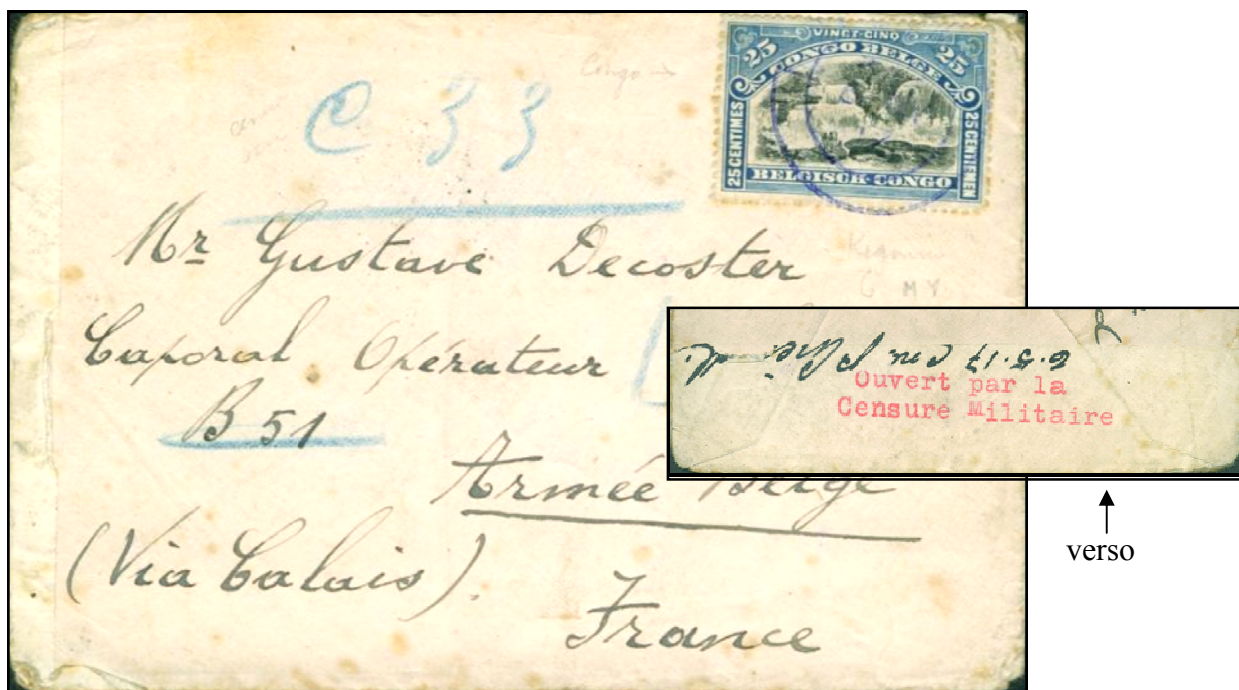 Congo
C 33
VINGT-CINQ
25 CONGO BELGE 25
25 CENTIMES
25 CENTIEMEN
BELGISCH-CONGO
Mr Gustave Decoster
Caporal Opérateur
B 51
Armée Belge
(Via Calais)
France
6.5.17
Ouvert par la
Censure Militaire
verso